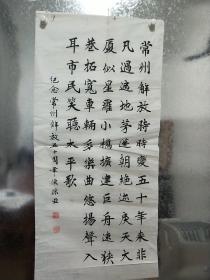 常州解放转时变五十年来非
凡遇遍地茅逢朝绝迹庚天大
厦似星罗小桥扩建巨舟速狭
巷拓宽车辆多乐曲悠扬声入
耳市民笑听太平歌
纪念常州解放五十周年